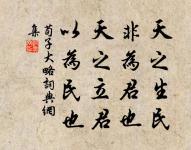 天之生民
非為君也
天之立君
以為民也
荀子大略詞典網
集